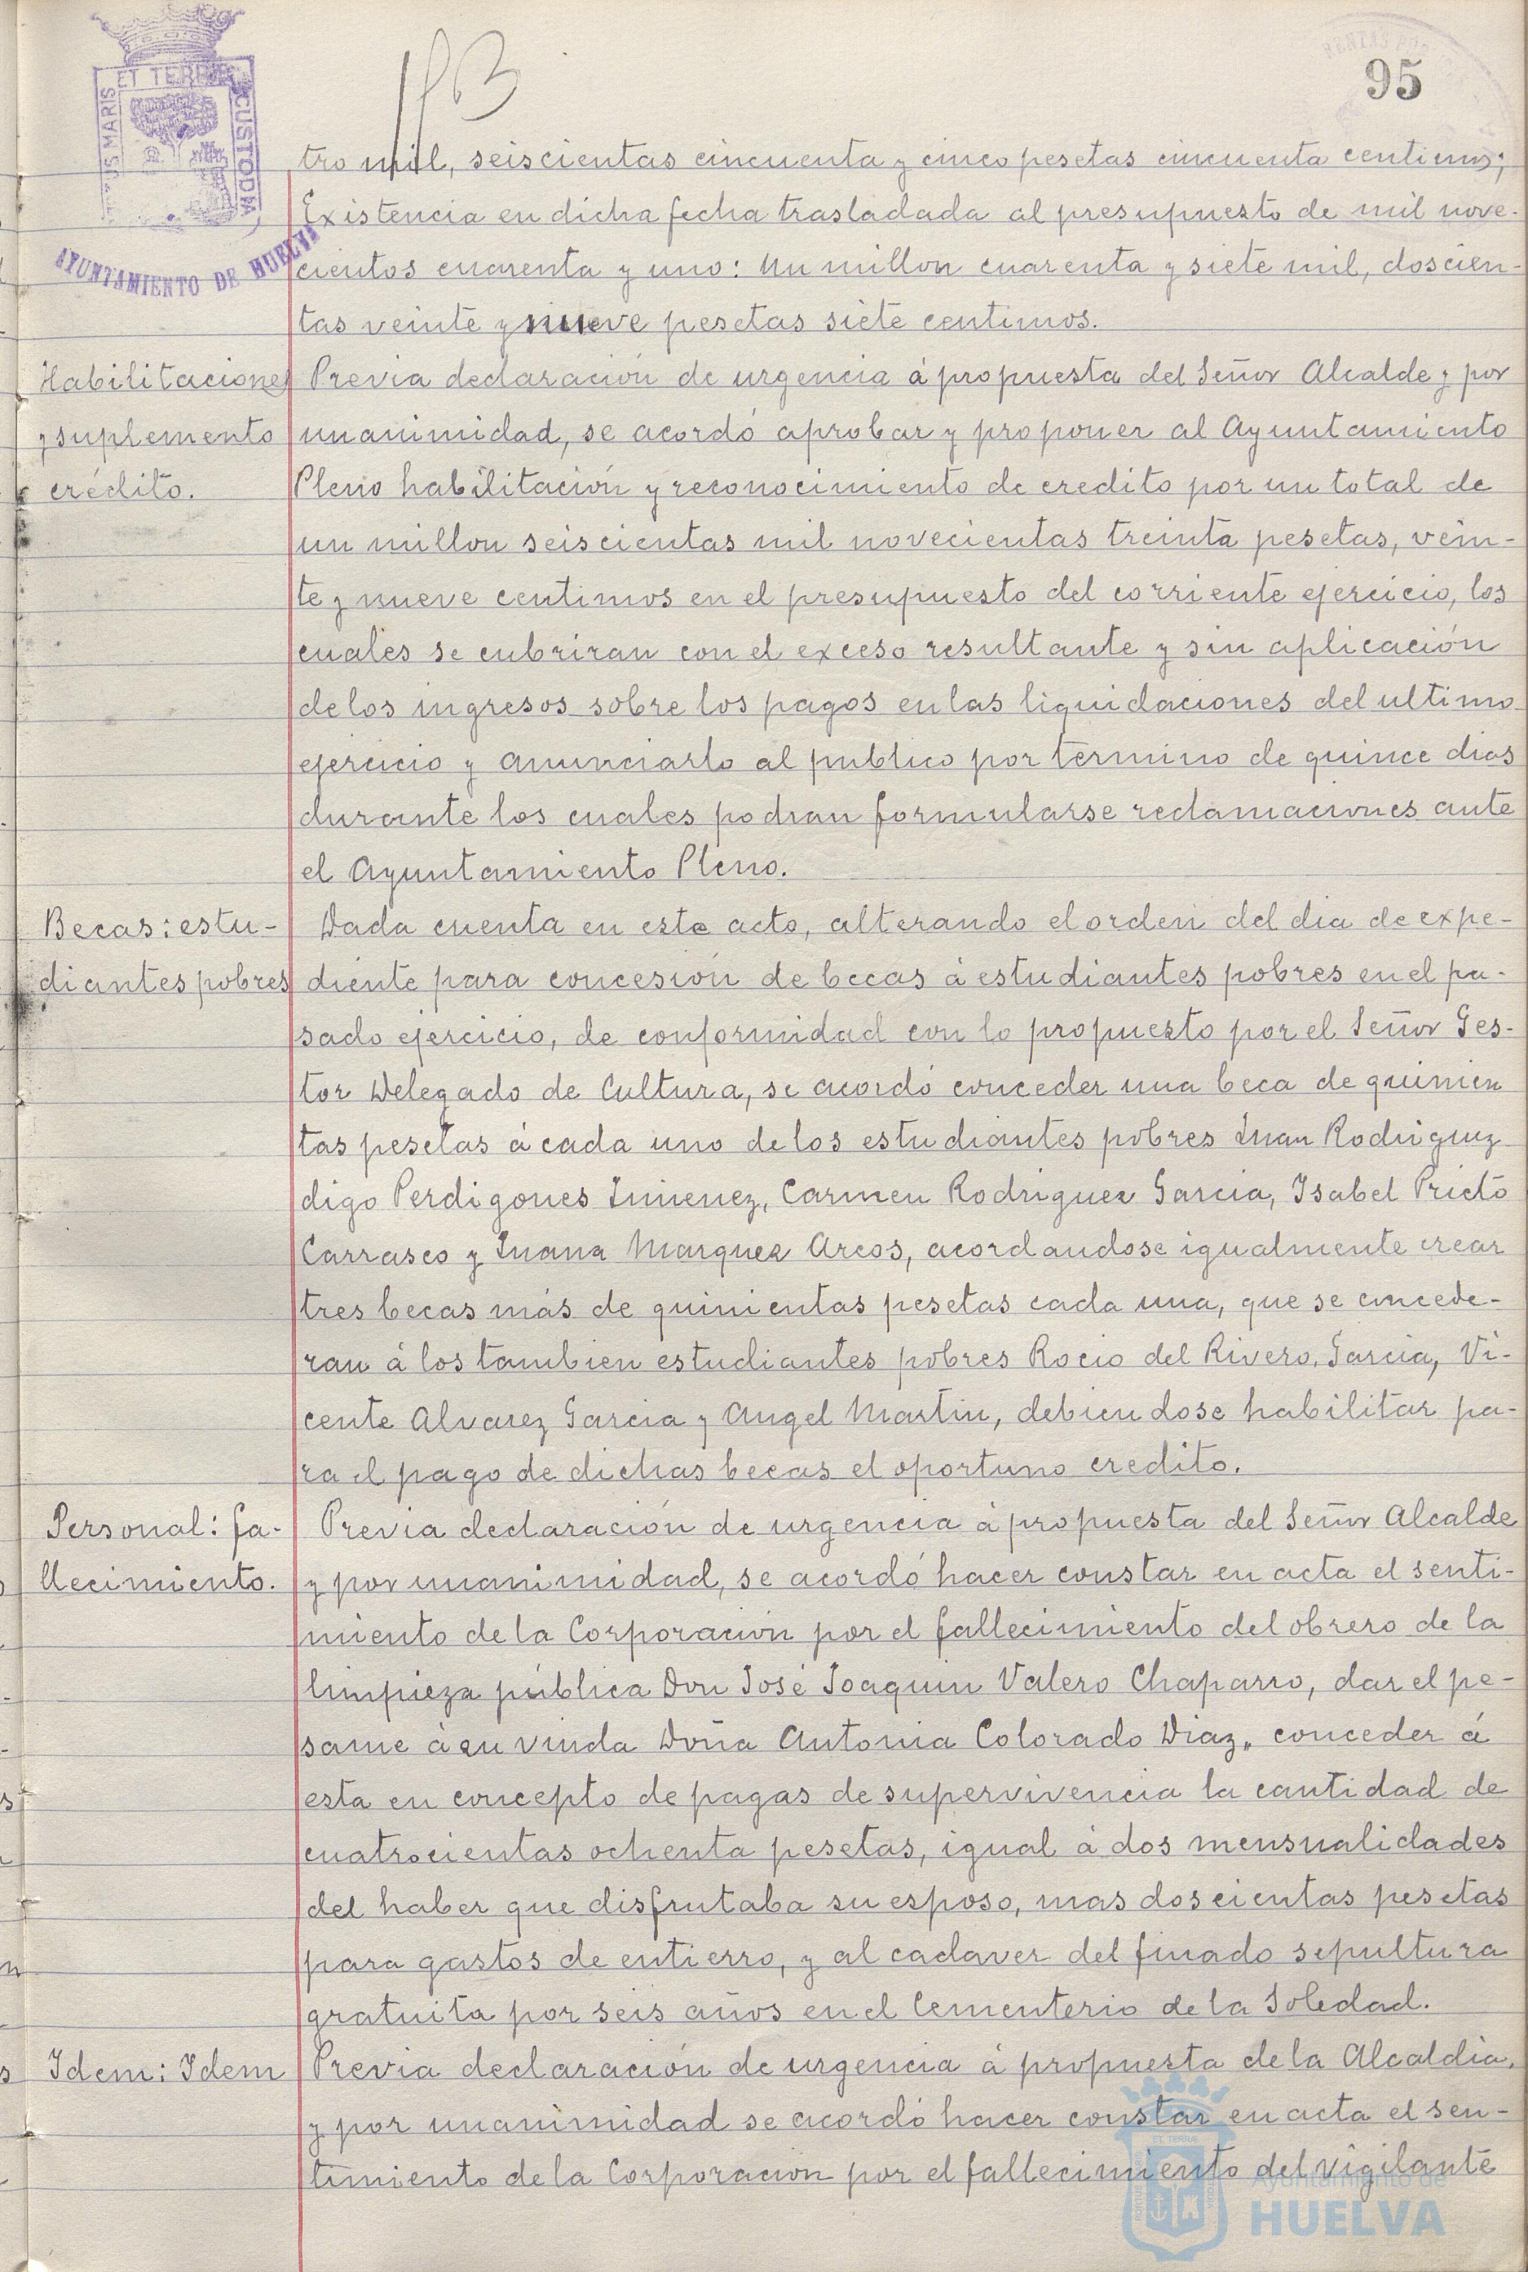 95
PORTUS MARIS ET TERRE CUSTODIA
AYUNTAMIENTO DE HUELVA
tro mil, seiscientas cincuenta y cinco pesetas cincuenta centimos;
Existencia en dicha fecha trasladada al presupuesto de mil nove-
cientos cuarenta y uno: Un millon cuarenta y siete mil, doscien-
tas veinte y nueve pesetas siete centimos.
Habilitaciones
y suplemento
crédito.
Previa declaración de urgencia á propuesta del Señor Alcalde y por
unanimidad, se acordó aprobar y proponer al Ayuntamiento
Pleno habilitación y reconocimiento de credito por un total de
un millon seiscientas mil novecientas treinta pesetas, vein-
te y nueve centimos en el presupuesto del corriente ejercicio, los
cuales se cubriran con el exceso resultante y sin aplicación
de los ingresos sobre los pagos en las liquidaciones del ultimo
ejercicio y anunciarlo al publico por termino de quince dias
durante los cuales podran formularse reclamaciones ante
el Ayuntamiento Pleno.
Becas: estu-
diantes pobres
Dada cuenta en este acto, alterando el orden del dia de expe-
diente para concesión de becas á estudiantes pobres en el pa-
sado ejercicio, de conformidad con lo propuesto por el Señor Ges-
tor Delegado de Cultura, se acordó conceder una beca de quinien
tas pesetas á cada uno de los estudiantes pobres Juan Rodriguez
digo Perdigones Jimenez, Carmen Rodriguez Garcia, Isabel Prieto
Carrasco y Juana Marquez Arcos, acordandose igualmente crear
tres becas más de quinientas pesetas cada una, que se concede-
ran á los tambien estudiantes pobres Rocio del Rivero Garcia, Vi-
cente Alvarez Garcia y Angel Martin, debiendose habilitar pa-
ra el pago de dichas becas el oportuno credito.
Personal: fa-
llecimiento.
Previa declaración de urgencia á propuesta del Señor Alcalde
y por unanimidad, se acordó hacer constar en acta el senti-
miento de la Corporación por el fallecimiento del obrero de la
limpieza pública Don José Joaquin Valero Chaparro, dar el pe-
same á su viuda Doña Antonia Colorado Diaz, conceder á
esta en concepto de pagas de supervivencia la cantidad de
cuatrocientas ochenta pesetas, igual á dos mensualidades
del haber que disfrutaba su esposo, mas doscientas pesetas
para gastos de entierro, y al cadaver del finado sepultura
gratuita por seis años en el Cementerio de la Soledad.
Idem: Idem
Previa declaración de urgencia á propuesta de la Alcaldia,
y por unanimidad se acordó hacer constar en acta el sen-
timiento de la Corporación por el fallecimiento del vigilante
Ayuntamiento de
HUELVA